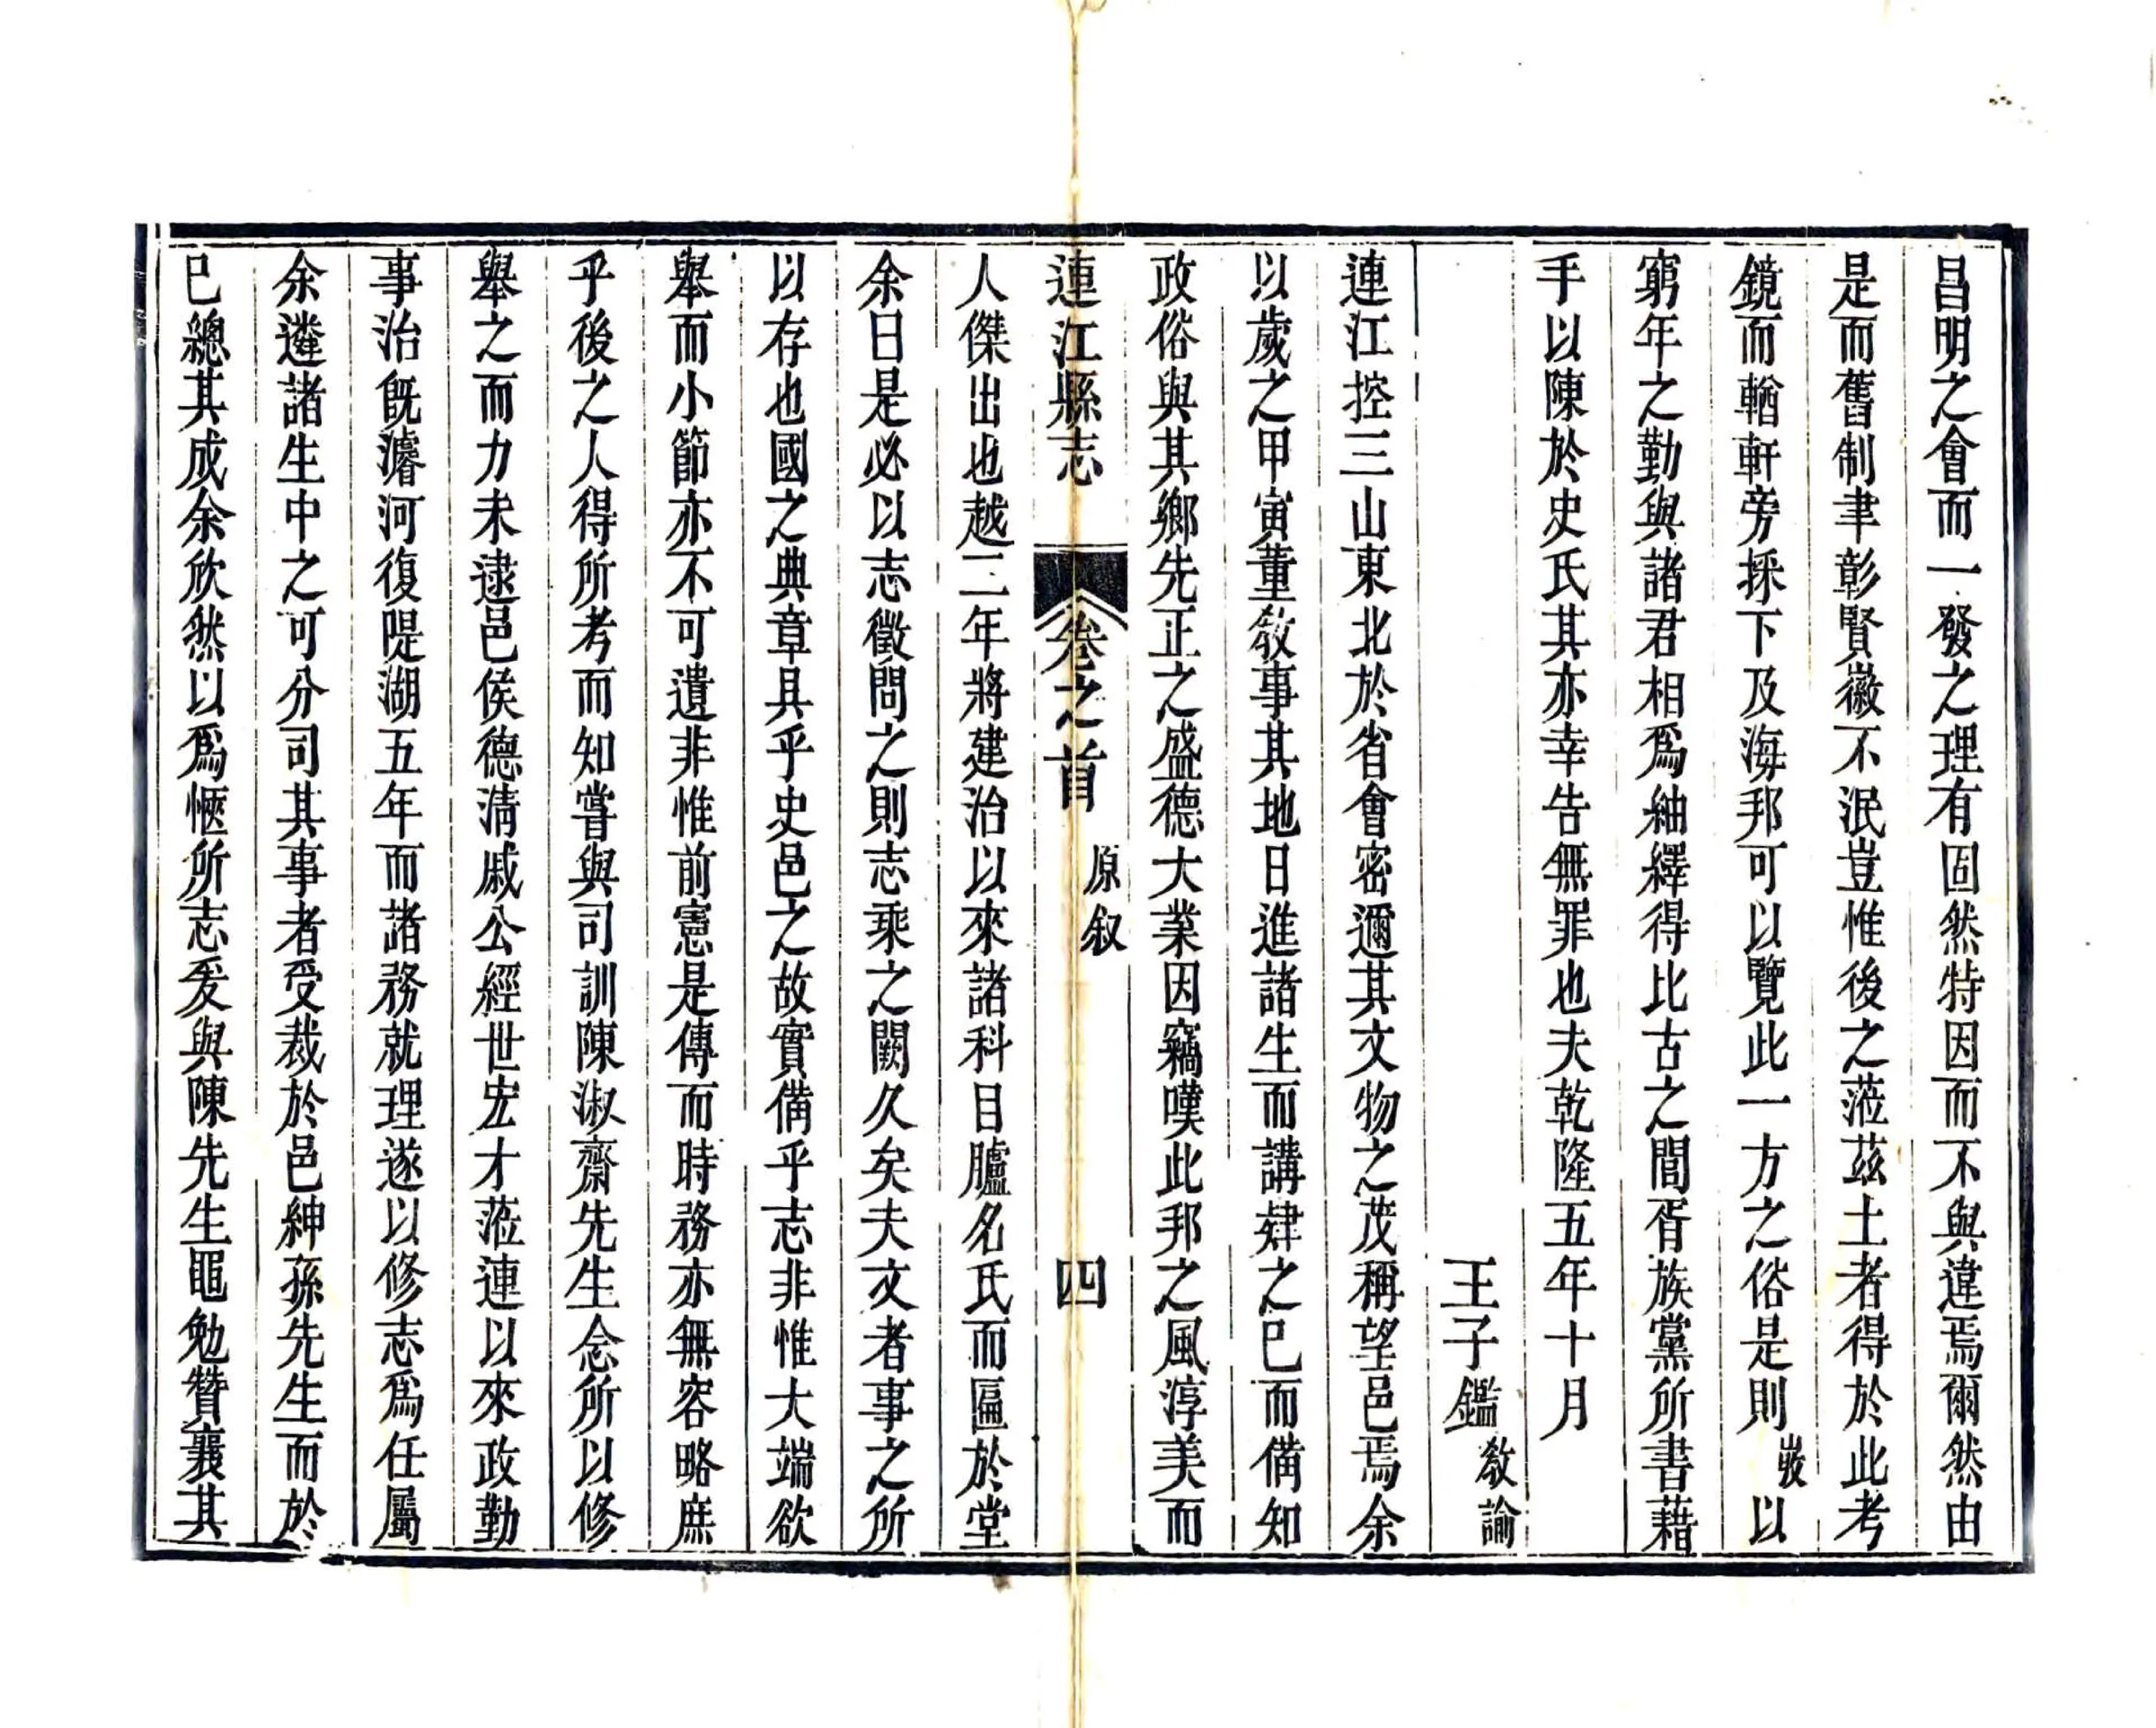 昌明之會而一發之理有固然特因而不與違焉爾然由
是而舊制聿彰賢徽不泯豈惟後之蒞茲土者得於此考
鏡而輶軒旁採下及海邦可以覽此一方之俗是則㞾以
窮年之勤與諸君相爲紬繹得比古之閭胥族黨所書藉
手以陳於史氏其亦幸告無罪也夫乾隆五年十月
王子鑑教諭
連江控三山東北於省會密邇其文物之茂稱望邑焉余
以歲之甲寅董敎事其地日進諸生而講肄之已而備知
政俗與其鄉先正之盛德大業因竊嘆此邦之風淳美而
連江縣志 卷之首 原叙 四
人傑出也越二年將建治以來諸科目臚名氏而匾於堂
余曰是必以志徵問之則志乘之闕久矣夫文者事之所
以存也國之典章具乎史邑之故實備乎志非惟大端欲
舉而小節亦不可遺非惟前憲是傳而時務亦無容略庶
乎後之人得所考而知嘗與司訓陳淑齋先生念所以修
舉之而力未逮邑侯德淸戚公經世宏才蒞連以來政勤
事治旣濬河復隄湖五年而諸務就理遂以修志爲任屬
余遴諸生中之可分司其事者受裁於邑紳孫先生而於
已總其成余欣然以爲愜所志爰與陳先生黽勉贊襄其